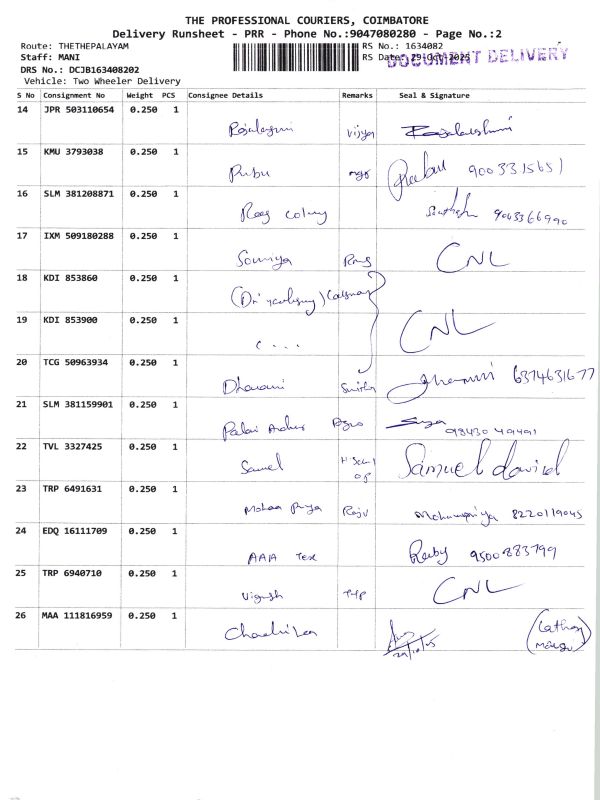 THE PROFESSIONAL COURIERS, COIMBATORE
Delivery Runsheet - PRR - Phone No.:9047080280 - Page No.:2
Route: THETHEPALAYAM
RS No.: 1634082
Staff: MANI
RS Date: 29-Oct-2025
DOCUMENT DELIVERY
DRS No.: DCJB163408202
Vehicle: Two Wheeler Delivery
S No Consignment No Weight PCS Consignee Details Remarks Seal & Signature
14 JPR 503110654 0.250 1 Vijya Rajalakshmi
15 KMU 3793038 0.250 1 Prabu 9003315651
16 SLM 381208871 0.250 1 Colony 9043366990
17 IXM 509180288 0.250 1 Sowmya CNL
18 KDI 853860 0.250 1
19 KDI 853900 0.250 1 CNL
20 TCG 50963934 0.250 1 Dharani 6374631677
21 SLM 381159901 0.250 1 Surya 98430 49491
22 TVL 3327425 0.250 1 Samuel Samuel david
23 TRP 6491631 0.250 1 Mohana Priya Raju Mohanapriya 8220119045
24 EDQ 16111709 0.250 1 AAA Tex Ruby 9500883799
25 TRP 6940710 0.250 1 Vignesh CNL
26 MAA 111816959 0.250 1 29/10/25